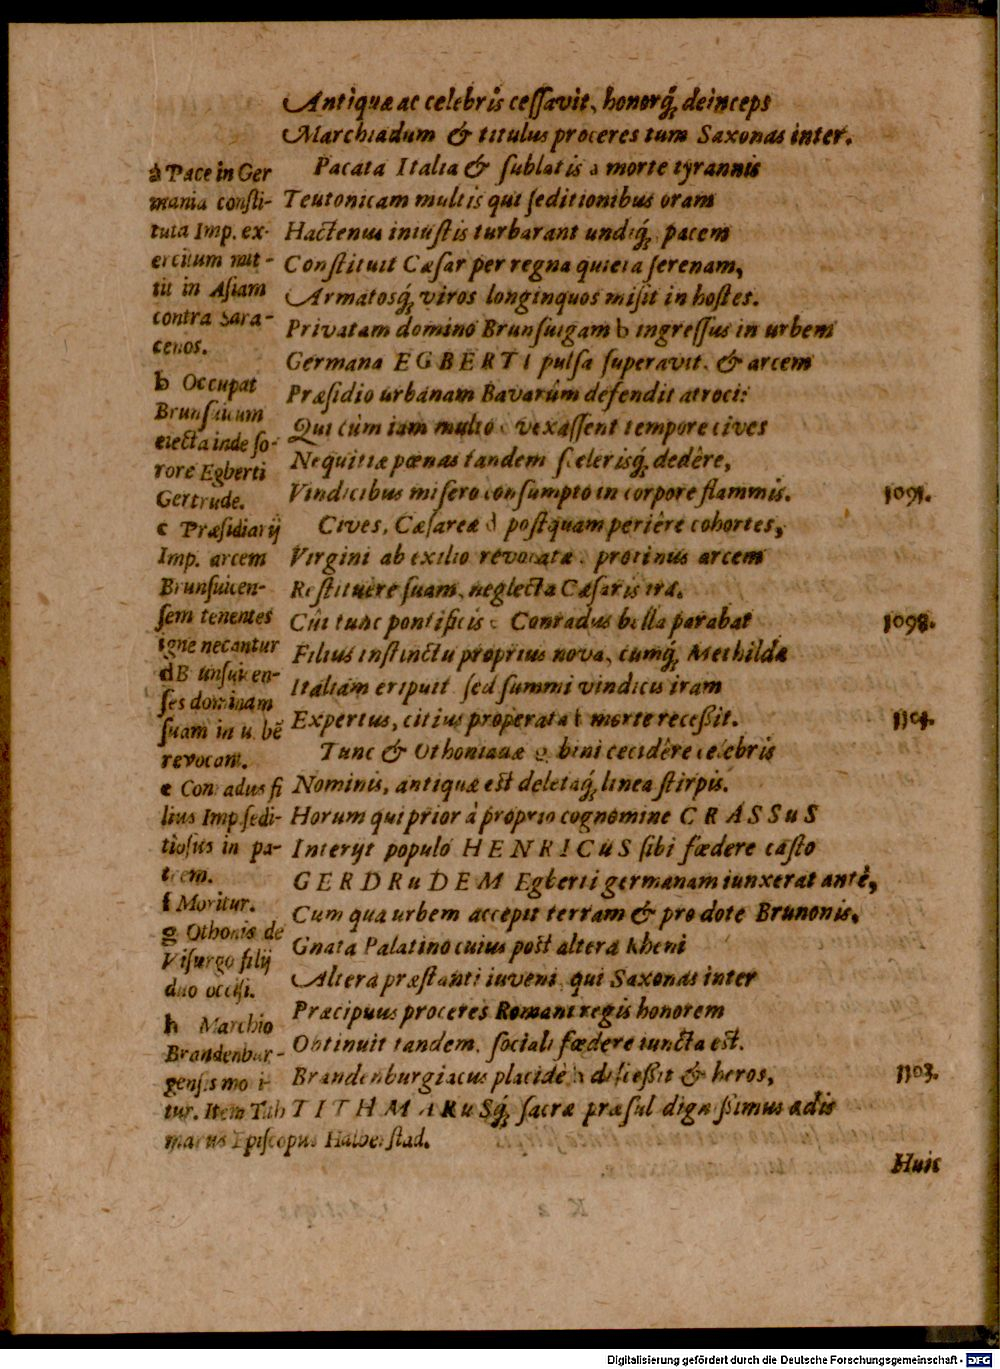 Antiquæ ac celebris cessavit, honorq́; deinceps
Marchiadum & titulus proceres tum Saxonas inter.
Pacata Italia & sublatis a morte tyrannis
Teutonicam multis qui seditionibus oram
Hactenus iniustis turbarant undiq́; pacem
Constituit Cæsar per regna quieta serenam,
Armatosq́; viros longinquos misit in hostes.
Privatam domino Brunsuigam b ingressus in urbem
Germana EGBERTI pulsa superavit. & arcem
Præsidio urbanam Bavarûm defendit atroci:
Qui cùm iam multo c vexassent tempore cives
Nequitiæ pœnas tandem scelerisq́; dedêre,
Vindicibus misero consumpto in corpore flammis.
1091.
Cives, Cæsareæ d postquam periêre cohortes,
Virgini ab exilio revocatæ protinus arcem
Restituêre suam, neglecta Cæsaris ira.
Cũ tunc pontificis e Conradus bella parabat
1098.
Filius instinctu proprius nova, cumq́; Methilda
Italiam eripuit sed summi vindicis iram
Expertus, citius properata f morte recessit.
1101.
Tunc & Othonianæ g bini cecidêre celebris
Nominis, antiquæ est deletaq́; linea stirpis.
Horum qui prior à proprio cognomine CRASSuS
Interijt populo HENRICuS sibi fœdere casto
GERDRuDEM Egberti germanam iunxerat antè,
Cum qua urbem accepit terram & pro dote Brunonis,
Gnata Palatino cuius post altera Rheni
Altera præstanti iuveni, qui Saxonas inter
Præcipuus proceres Romani regis honorem
Obtinuit tandem, sociali fœdere iuncta est.
Brandenburgiacus placidè h discessit & heros,
1103.
TITHMARuSq́; sacræ præsul dignissimus ædis
Huic
a Pace in Ger
mania consti-
tuta Imp. ex-
ercitum mit-
tit in Asiam
contra Sara-
cenos.
b Occupat
Brunsuicum
eiecta inde so-
rore Egberti
Gertrude.
c Præsidiarij
Imp. arcem
Brunsuicen-
sem tenentes
igne necantur
d Brunsuicen-
ses dominam
suam in urbẽ
revocant.
e Conradus fi
lius Imp. sedi-
tiosus in pa-
trem.
f Moritur.
g Othonis de
Visurgo filij
duo occisi.
h Marchio
Brandenbur-
gensis mori-
tur. Item Tith
marus Episcopus Halberstad.
Digitalisierung gefördert durch die Deutsche Forschungsgemeinschaft - DFG